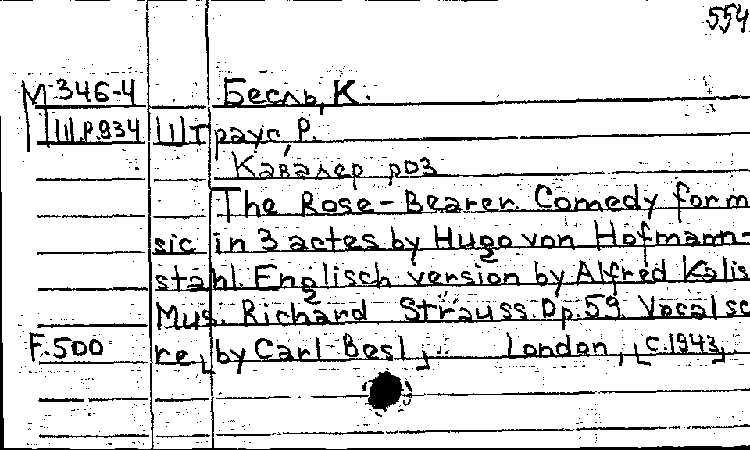 554
М 346-4 Бесль, К.
Ш.Р.934 Штраус, Р.
Кавалер роз
The Rose-Bearer. Comedy for m
sic in 3 actes by Hugo von Hofmann-
stahl. Englisch version by Alfred Kalis
Mus. Richard Strauss. Op. 59. Vocal sc
F.500 re [by Carl Besl]. London, [c.1943]